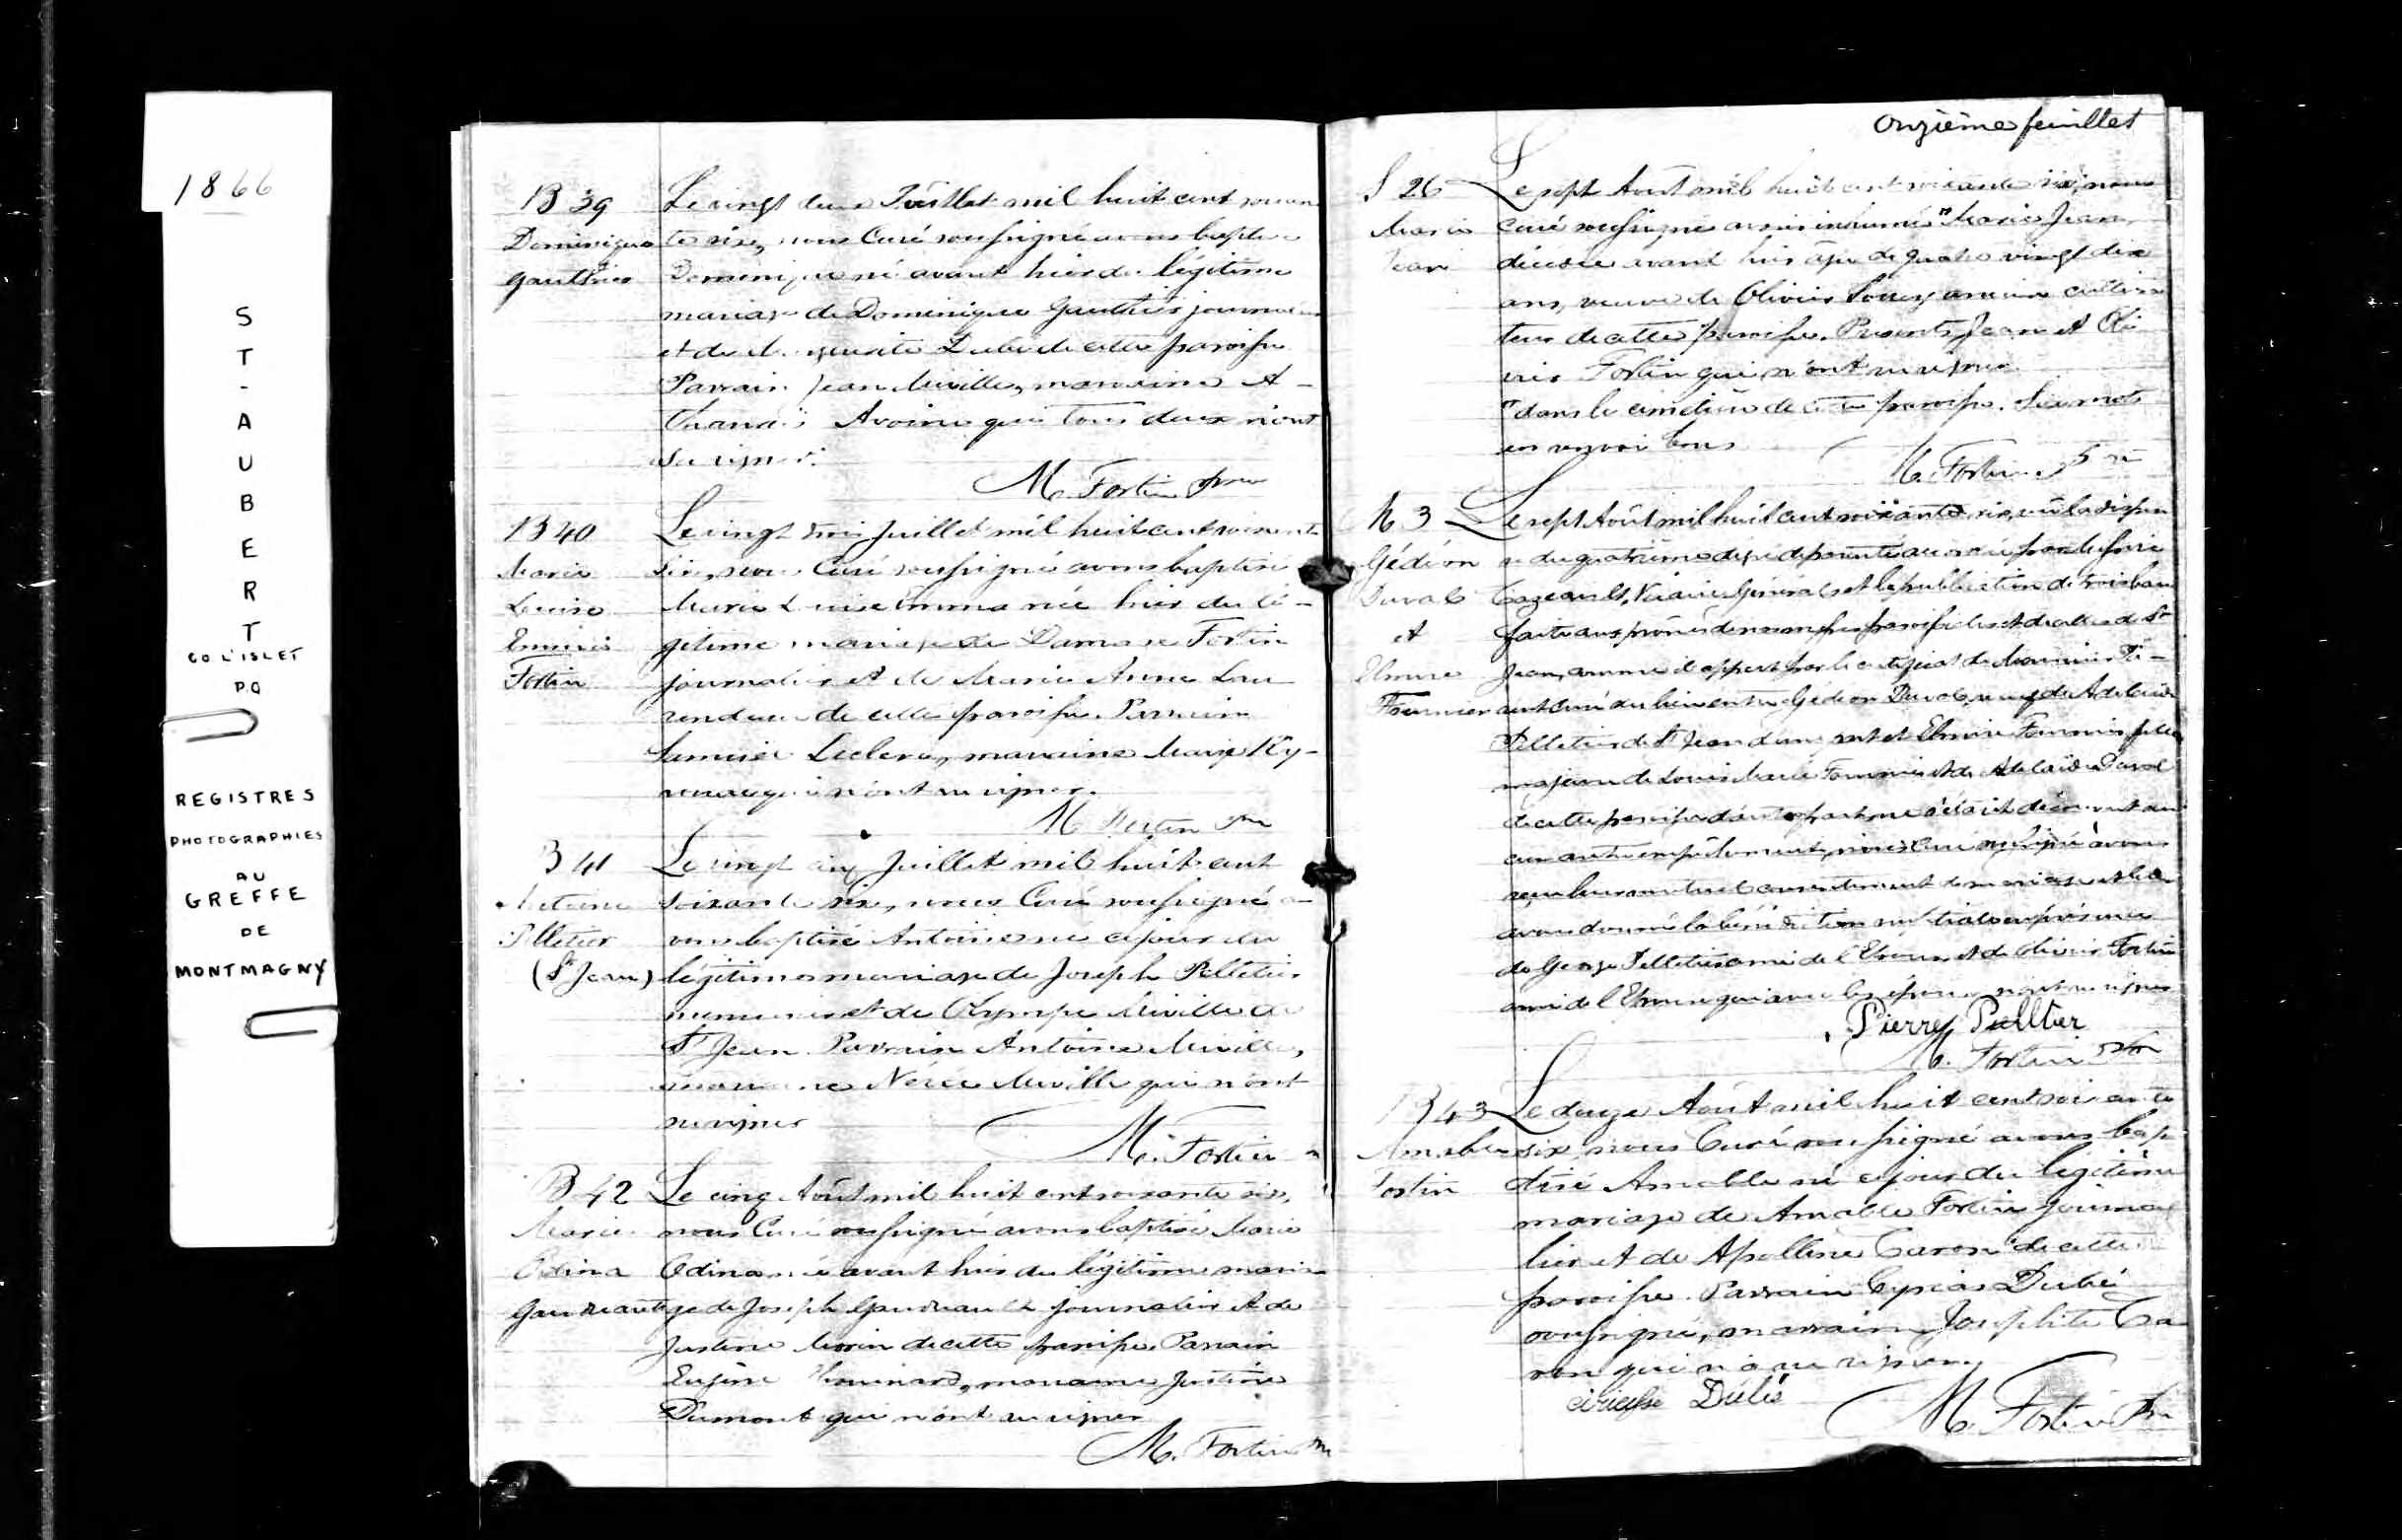 1866
ST-AUBERT
CO L'ISLET
P.Q
REGISTRES
PHOTOGRAPHIES
AU
GREFFE
DE
MONTMAGNY
B 39
Dominique
Gauthier
Le vingt deux Juillet mil huit cent soixan
te six, nous Curé soussigné avons baptisé
Dominique né avant hier du légitime
mariage de Dominique Gauthier journalier
et de Dubé de cette paroisse
Parrain Jean Miville, marraine A-
Avoine qui tous deux n'ont
su signer.
M. Fortin Ptre
B 40
Marie
Louise
Fortin
Le vingt trois Juillet mil huit cent soixante
six, nous Curé soussigné avons baptisé
Marie Louise née hier du lé-
gitime mariage de Damase Fortin
journalier et de Marie Anne Lau
rendeau de cette paroisse. Parrain
Leclerc, marraine Marie
qui n'ont su signer.
M Fortin Ptre
B 41
Antoine
Pelletier
(St Jean)
Le vingt cinq Juillet mil huit cent
soixante six, nous Curé soussigné a-
vons baptisé Antoine né ce jour du
légitime mariage de Joseph Pelletier
et de Olympe Miville de
St Jean. Parrain Antoine Miville,
marraine Nérée Miville qui n'ont
su signer
M. Fortin
B 42
Marie
Odina
Gaudreault
Le cinq Août mil huit cent soixante six,
nous Curé soussigné avons baptisé Marie
Odina née avant hier du légitime maria
ge de Joseph Gaudreault journalier et de
Justine Morin de cette paroisse. Parrain
Eugène Chouinard, marraine Justine
Dumont qui n'ont su signer
M. Fortin Ptre
Onzième feuillet
S 26
Marie
Jean
Le sept Août mil huit cent soixante six, nous
curé soussigné avons inhumé " Marie Jean,
décédée avant hier âgée de quatre vingt dix
ans, veuve de Olivier ancien cultiva
teur de cette paroisse. Présents Jean et Oli
vier Fortin qui n'ont su signer
" dans le cimetière de cette paroisse. Six mots
en renvoi bons
M. Fortin Ptre
M. 3
Gédéon
Duval
et
Elmire
Fournier
Le sept Août mil huit cent soixante six, vû la dispen
se du quatrième degré de parenté accordée par Messire
Cazeault, Vicaire Général et la publication de trois bans
faite aux prônes de nos messes paroissiales et de celles de St
Jean, comme il appert par le certificat de Monsieur Pa-
rent curé du lieu entre Gédéon Duval, veuf de Adelaide
Pelletier de St Jean d'une part et Elmire Fournier fille
majeure de Louis Marie Fournier et de Adelaide Duval
de cette paroisse d'autre part ne s'étant découvert au
cun autre empêchement, nous Curé soussigné avons
reçu leur mutuel consentement de mariage et leur
avons donné la bénédiction nuptiale en présence
de George Pelletier ami de l'Epoux et de Olivier Fortin
ami de l'Epouse qui avec les époux n'ont su signer
Pierre Pelltier
M. Fortin Ptre
B 43
Amable
Fortin
Le douze Août mil huit cent soixante
six, nous Curé soussigné avons bap
tisé Amable né ce jour du légitime
mariage de Amable Fortin journal
lier et de Apolline Caron de cette
paroisse. Parrain Cyrias Dubé
soussigné, marraine Josephte Ca
ron qui n'a su signer
Dubé
M. Fortin Ptre